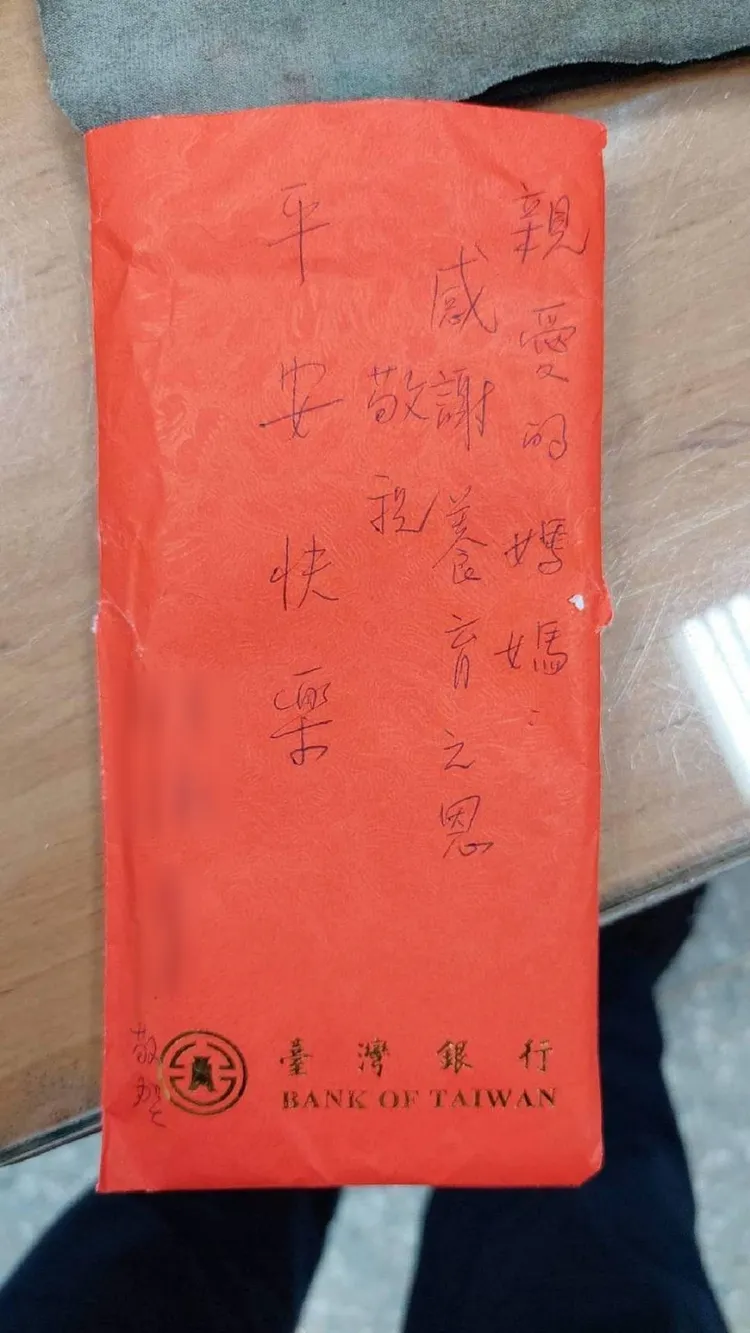 親愛的媽媽：
感謝養育之恩
敬祝
平安快樂
敬上
臺灣銀行
BANK OF TAIWAN